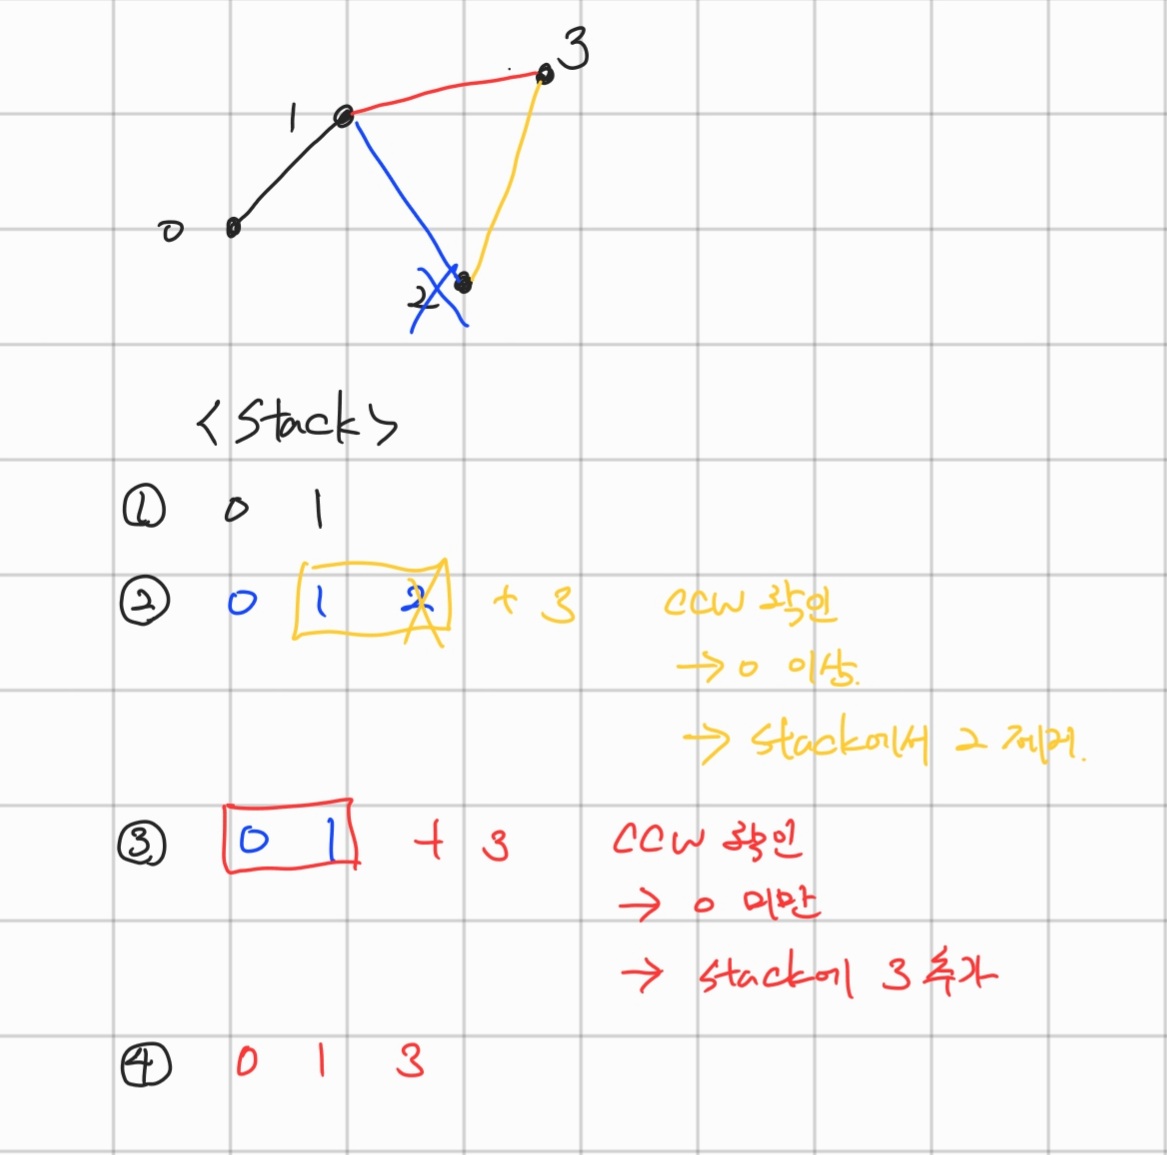 3
1
0
2
<Stack>
① 0 1
② 0 1 2 + 3 CCW 확인
→ 0 이상.
→ stack에서 2 제거.
③ 0 1 + 3 CCW 확인
→ 0 미만
→ stack에 3 추가
④ 0 1 3